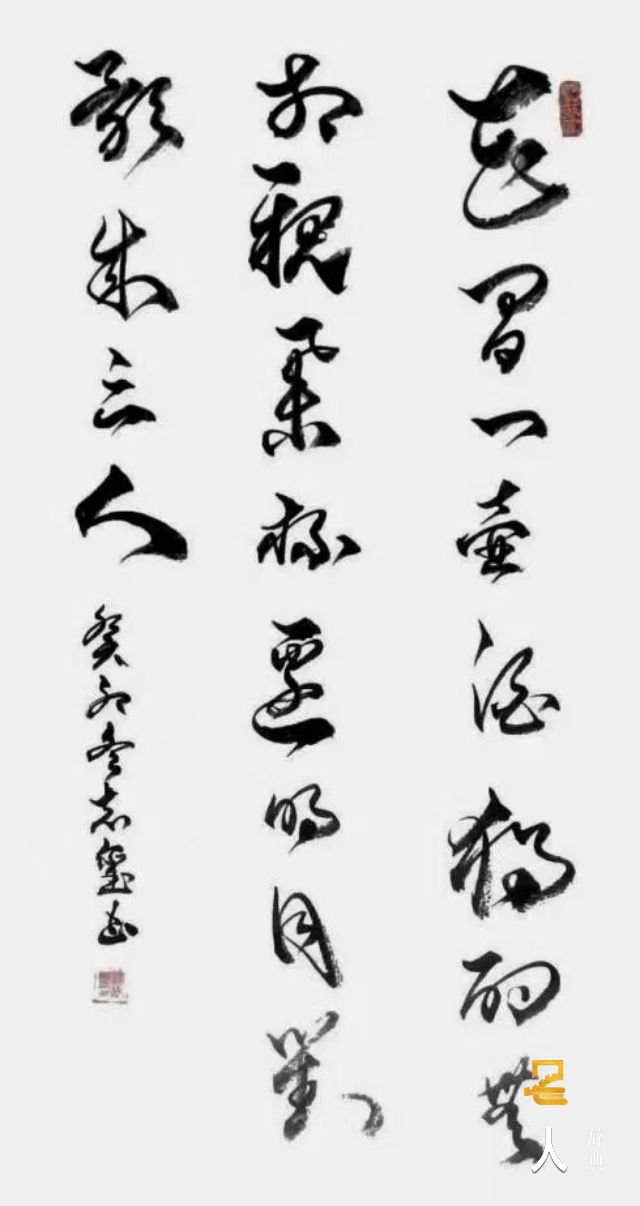 花間一壺酒獨酌無
相親舉杯邀明月對
影成三人
癸卯冬志璽书
名人辞典